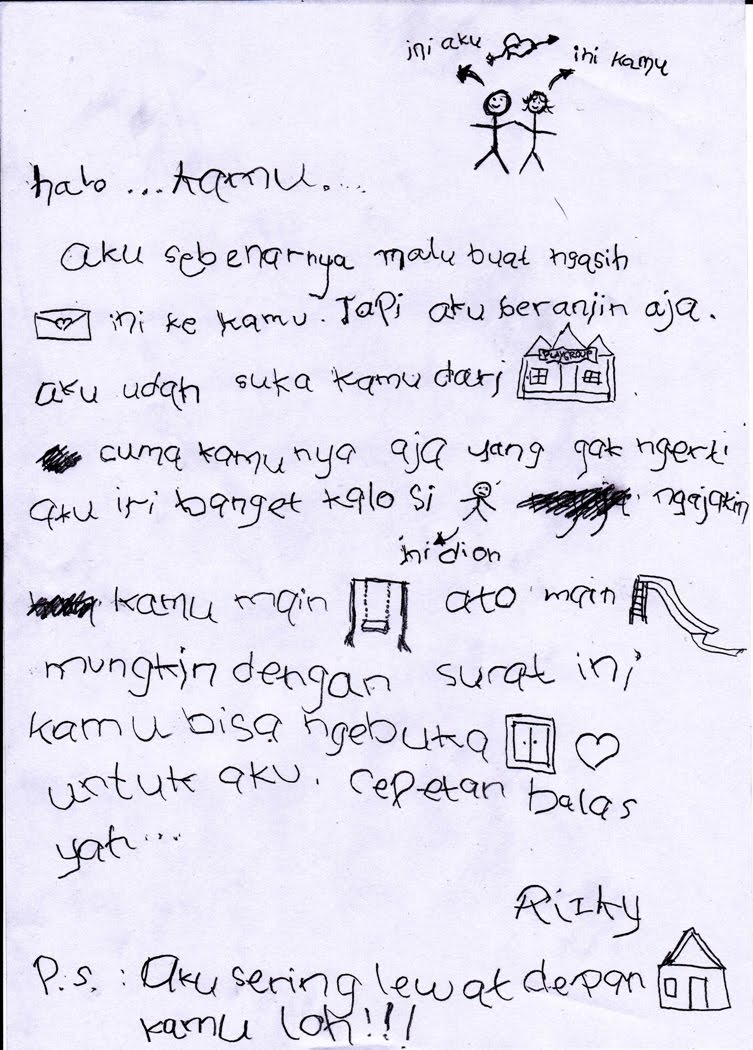 ini aku
ini kamu
halo ... kamu....
aku sebenarnya malu buat ngasih
ini ke kamu. Tapi aku beranjin aja.
PLAYGROUP
aku udah suka kamu dari
cuma kamunya aja yang gak ngerti
aku iri banget kalo si ngajakin
ini dion
kamu main ato main
mungkin dengan surat ini
kamu bisa ngebuka
untuk aku. cepetan balas
yah...
Rizky
P.s. : Aku sering lewat depan
kamu loh!!!